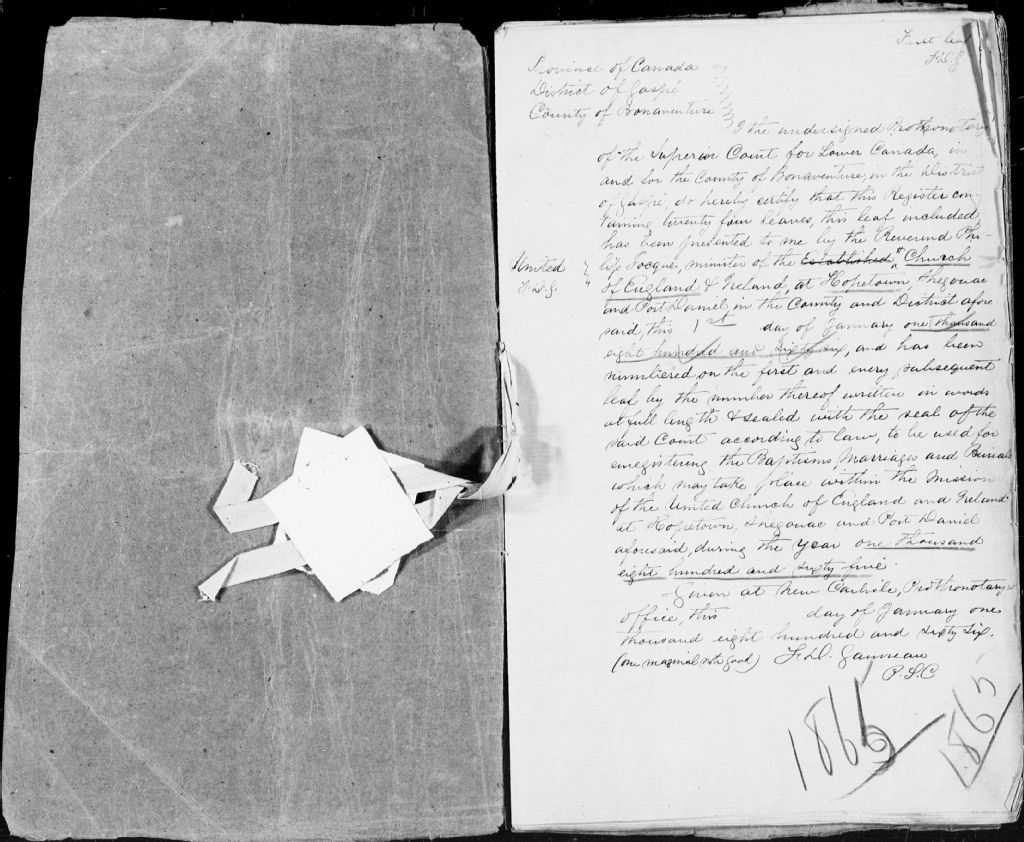 First leaf
F.D.G.
Province of Canada
District of Gaspé
County of Bonaventure
I the undersigned Prothonotary
of the Superior Court for Lower Canada, in
and for the County of Bonaventure, in the District
of Gaspé, do hereby certify that this Register con-
taining twenty four leaves, this leaf included,
has been presented to me by the Reverend Phi-
lip Tocque, minister of the Established Church
United
F.D.G.
of England & Ireland, at Hopetown, Shegouac
and Port Daniel, in the County and District afore
said, this 1st day of January one thousand
eight hundred and sixty six, and has been
numbered on the first and every subsequent
leaf by the number thereof written in words
at full length & sealed with the seal of the
said Court according to law, to be used for
enregistering the Baptisms, Marriages and Burials
which may take place within the Mission
of the United Church of England and Ireland
at Hopetown, Shegouac and Port Daniel
aforesaid, during the year one thousand
eight hundred and sixty five.
Given at New Carlisle, Prothonotary's
office, this day of January one
thousand eight hundred and sixty six.
(one marginal note good) F.D. Gauvreau
P.S.C
1866
1865